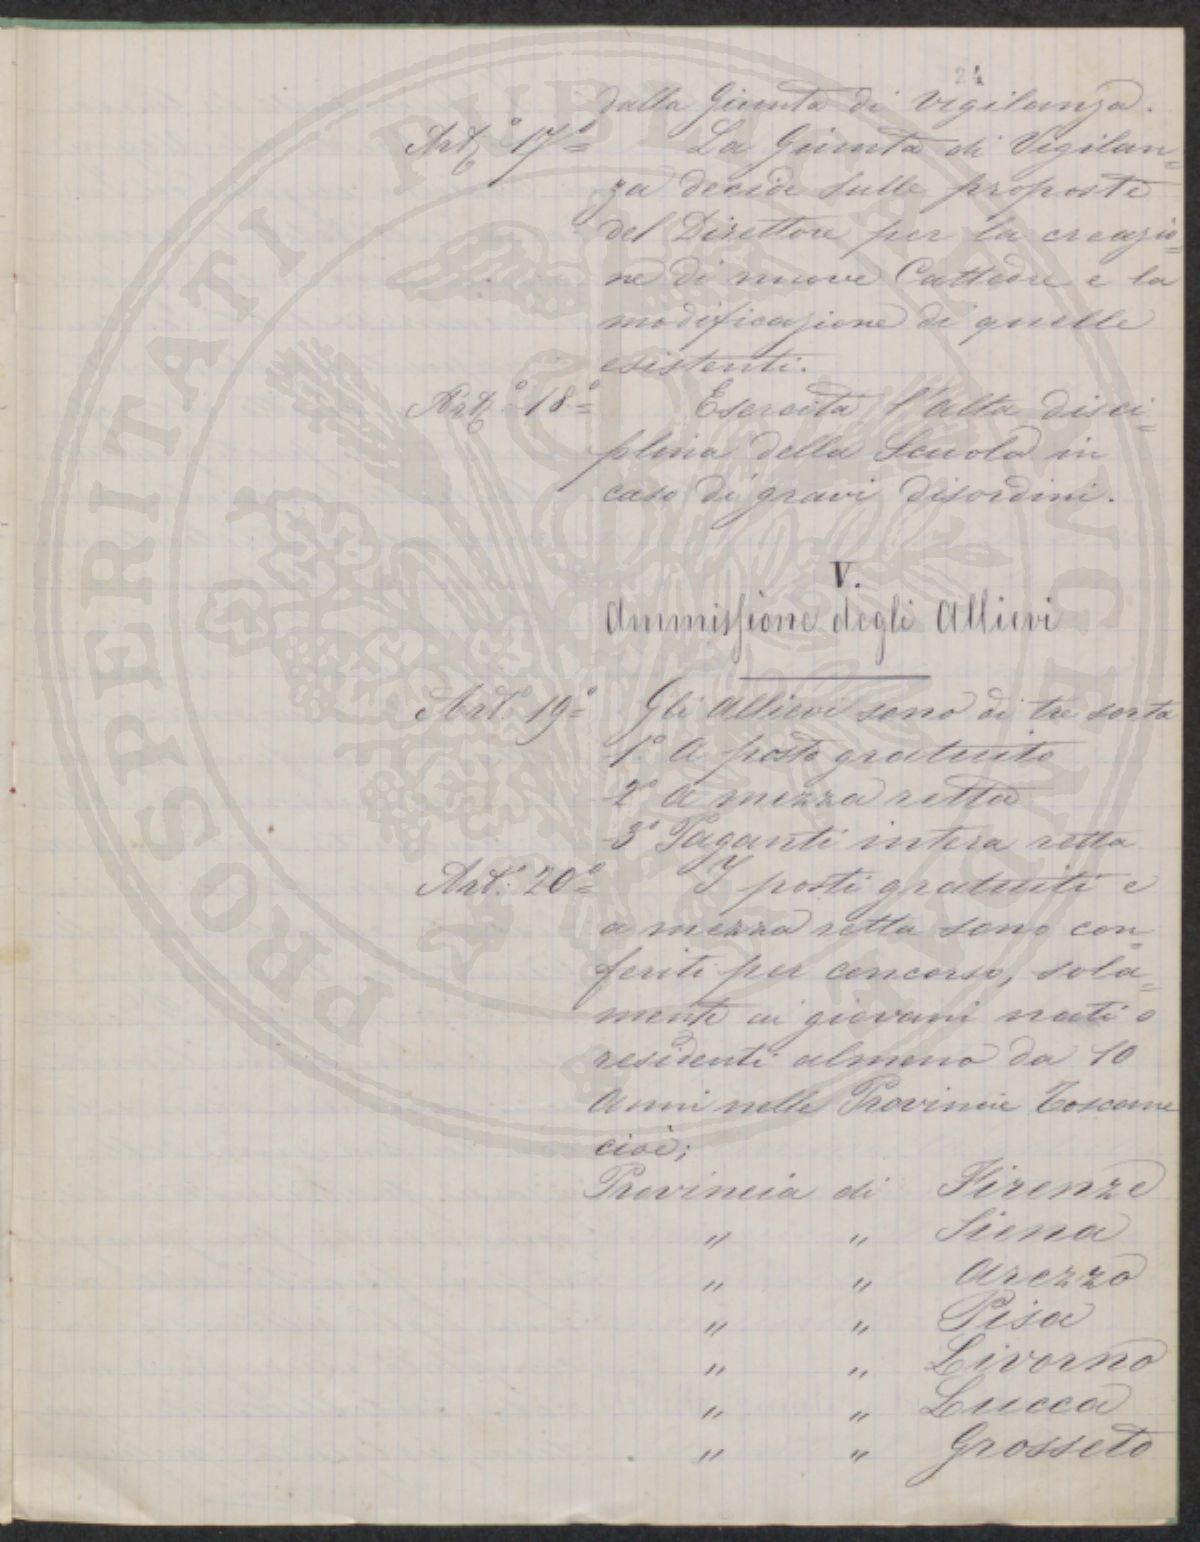 24
dalla Giunta di Vigilanza.
Art.º 17º= La Giunta di Vigilan=
za decide sulle proposte
del Direttore per la creazio=
ne di nuove Cattedre e la
modificazione di quelle
esistenti.
Art.º 18º= Esercita l'alta disci=
plina della Scuola in
caso di gravi disordini.
V.
Ammissione degli Allievi
Art.º 19º= Gli Allievi sono di tre sorta
1º A posto gratuito
2º A mezza retta
3º Paganti intera retta
Art.º 20º= I posti gratuiti e
a mezza retta sono con=
feriti per concorso, sola=
mente ai giovani nati o
residenti almeno da 10
Anni nelle Provincie Toscane
cioè;
Provincia di Firenze
" " Siena
" " Arezzo
" " Pisa
" " Livorno
" " Lucca
" " Grosseto
PROSPERITATI PUBLICAE AVGENDAE